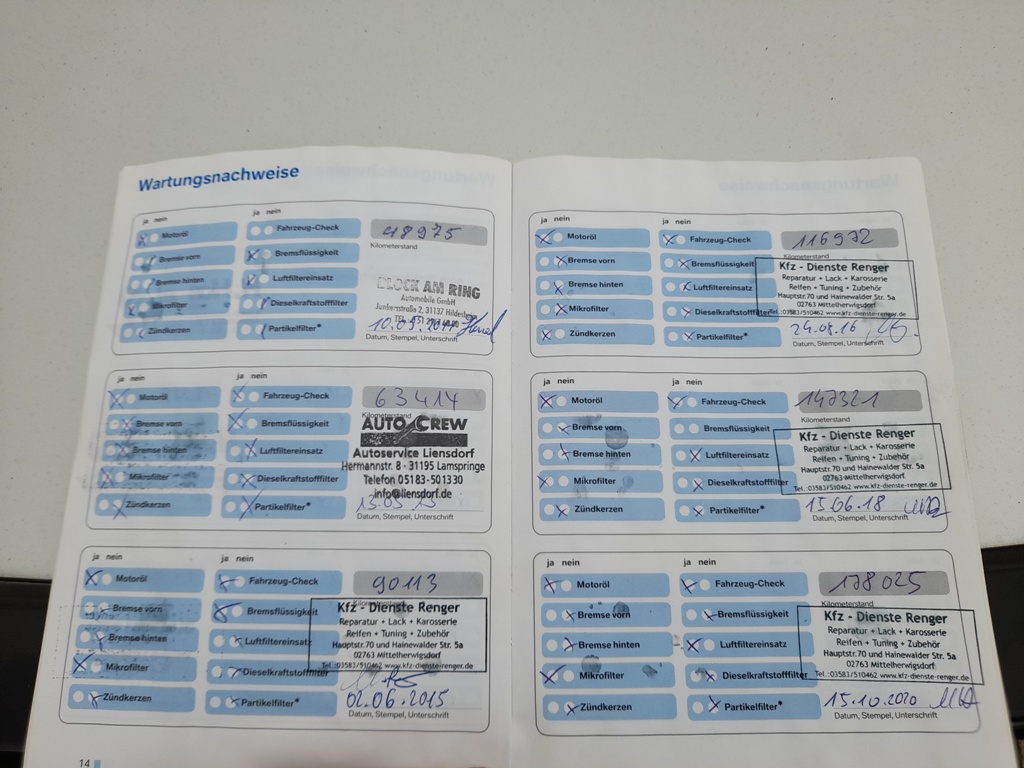 Wartungsnachweise
ja nein
ja nein
Motoröl
Fahrzeug-Check
48975
Kilometerstand
Bremse vorn
Bremsflüssigkeit
Bremse hinten
Luftfiltereinsatz
AM RING
Automobile GmbH
Mikrofilter
Dieselkraftstofffilter
2, 31137
Zündkerzen
Partikelfilter*
Datum, Stempel, Unterschrift
ja nein
ja nein
Motoröl
Fahrzeug-Check
63414
Kilometerstand
Bremse vorn
Bremsflüssigkeit
AUTO CREW
Bremse hinten
Luftfiltereinsatz
Autoservice Liensdorf
Hermannstr. 8 - 31195 Lamspringe
Mikrofilter
Dieselkraftstofffilter
Telefon 05183-501330
info@liensdorf.de
Zündkerzen
Partikelfilter*
15.03.13
Datum, Stempel, Unterschrift
ja nein
ja nein
Motoröl
Fahrzeug-Check
90113
Kilometerstand
Bremse vorn
Bremsflüssigkeit
Kfz - Dienste Renger
Reparatur + Lack + Karosserie
Bremse hinten
Luftfiltereinsatz
Reifen + Tuning + Zubehör
Hauptstr.70 und Hainewalder Str. 5a
02763 Mittelherwigsdorf
Mikrofilter
Dieselkraftstofffilter
Tel.:03583/510462 www.kfz-dienste-renger.de
Zündkerzen
Partikelfilter*
02.06.2015
Datum, Stempel, Unterschrift
14
ja nein
ja nein
Motoröl
Fahrzeug-Check
116972
Bremse vorn
Bremsflüssigkeit
Kfz - Dienste Renger
Reparatur + Lack + Karosserie
Bremse hinten
Luftfiltereinsatz
Reifen + Tuning + Zubehör
Hauptstr.70 und Hainewalder Str. 5a
02763 Mittelherwigsdorf
Mikrofilter
Dieselkraftstofffilter
Tel.:03583/510462 www.kfz-dienste-renger.de
Zündkerzen
Partikelfilter*
24.08.16
Datum, Stempel, Unterschrift
ja nein
ja nein
Motoröl
Fahrzeug-Check
147321
Kilometerstand
Bremse vorn
Bremsflüssigkeit
Kfz - Dienste Renger
Reparatur + Lack + Karosserie
Bremse hinten
Luftfiltereinsatz
Reifen + Tuning + Zubehör
Hauptstr.70 und Hainewalder Str. 5a
02763 Mittelherwigsdorf
Mikrofilter
Dieselkraftstofffilter
Tel.:03583/510462 www.kfz-dienste-renger.de
Zündkerzen
Partikelfilter*
15.06.18
Datum, Stempel, Unterschrift
ja nein
ja nein
Motoröl
Fahrzeug-Check
178025
Kilometerstand
Bremse vorn
Bremsflüssigkeit
Kfz - Dienste Renger
Reparatur + Lack + Karosserie
Bremse hinten
Luftfiltereinsatz
Reifen + Tuning + Zubehör
Hauptstr.70 und Hainewalder Str. 5a
02763 Mittelherwigsdorf
Mikrofilter
Dieselkraftstofffilter
Tel.:03583/510462 www.kfz-dienste-renger.de
Zündkerzen
Partikelfilter*
15.10.2020
Datum, Stempel, Unterschrift